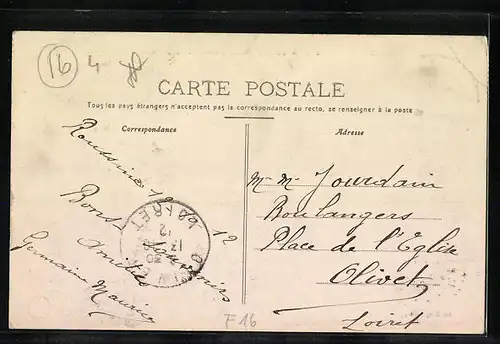 16 4
CARTE POSTALE
Tous les pays étrangers n'acceptent pas la correspondance au recto, se renseigner à la poste
Correspondance
Adresse
12
Bons Souvenirs
Amitiés
Germain Maurice
LOIRET
12
M. M. Jourdain
Boulangers
Place de l'Eglise
Olivet
Loiret
F16